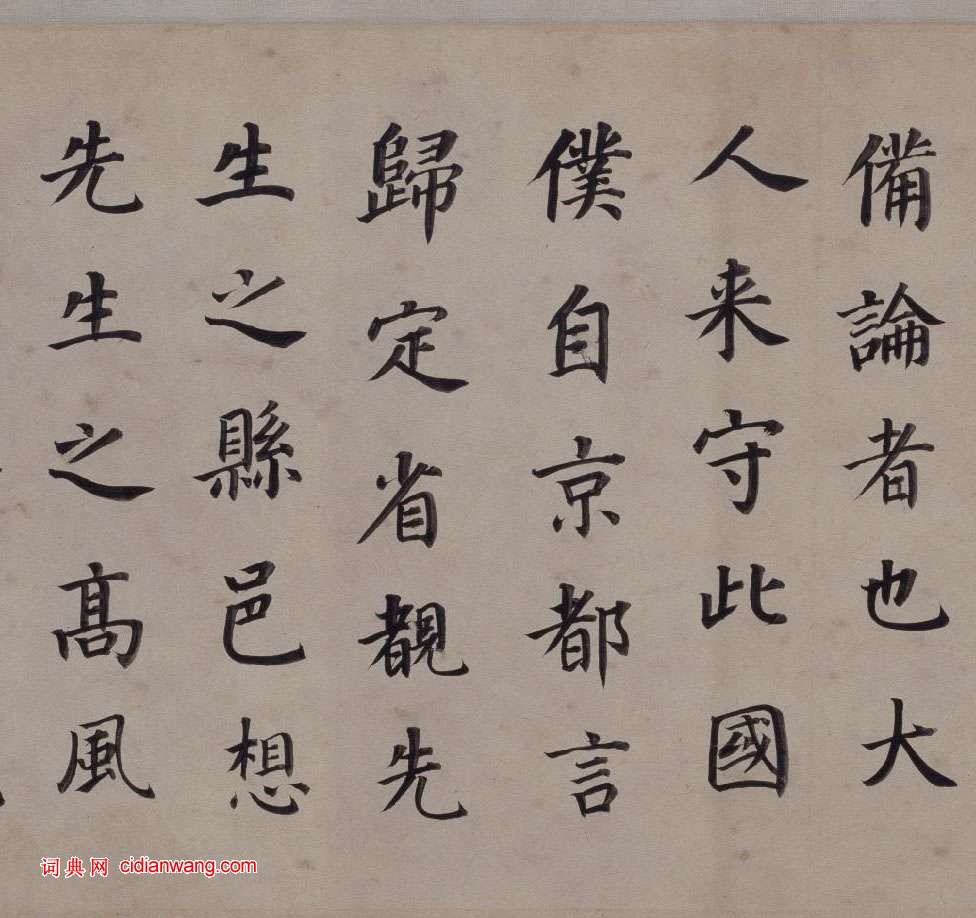 備論者也大
人来守此國
僕自京都言
歸定省覩先
生之縣邑想
先生之髙風
词典网 cidianwang.com